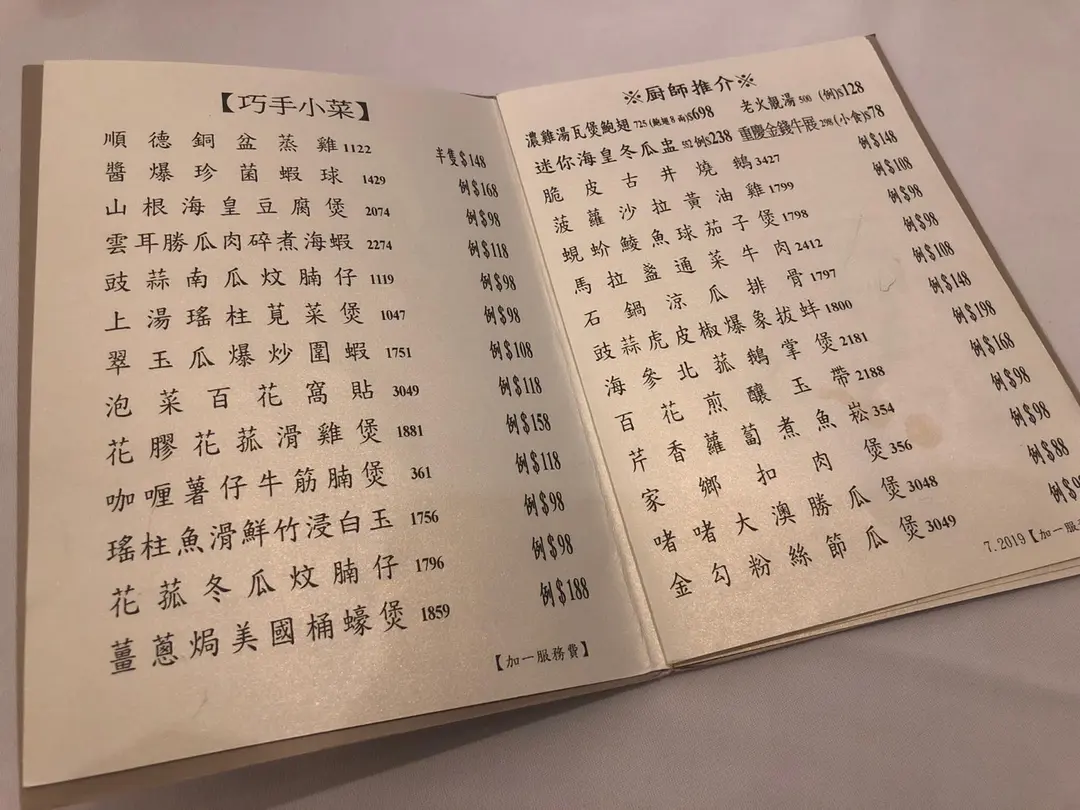 【巧手小菜】
順德銅盆蒸雞 1122 半隻$148
醬爆珍菌蝦球 1429 例$168
山根海皇豆腐煲 2074 例$98
雲耳勝瓜肉碎煮海蝦 2274 例$118
豉蒜南瓜炆腩仔 1119 例$98
上湯瑤柱莧菜煲 1047 例$98
翠玉瓜爆炒圍蝦 1751 例$108
泡菜百花窩貼 3049 例$118
花膠花菰滑雞煲 1881 例$158
咖喱薯仔牛筋腩煲 361 例$118
瑤柱魚滑鮮竹浸白玉 1756 例$98
花菰冬瓜炆腩仔 1796 例$98
薑蔥焗美國桶蠔煲 1859 例$188
【加一服務費】
※厨師推介※
濃雞湯瓦煲鮑翅 725 (鮑翅8両)$698 老火靚湯 500 (例)$128
迷你海皇冬瓜盅 512 例$238 重慶金錢牛展 298 (小食)$78
脆皮古井燒鵝 3427 例$148
菠蘿沙拉黃油雞 1799 例$108
蜆蚧鯪魚球茄子煲 1798 例$98
馬拉盞通菜牛肉 2412 例$98
石鍋涼瓜排骨 1797 例$108
豉蒜虎皮椒爆象拔蚌 1800 例$148
海參北菰鵝掌煲 2181 例$198
百花煎釀玉帶 2188 例$168
芹香蘿蔔煮魚崧 354 例$98
家鄉扣肉煲 356 例$98
啫啫大澳勝瓜煲 3048 例$88
金勾粉絲節瓜煲 3049 例$9
7.2019【加一服